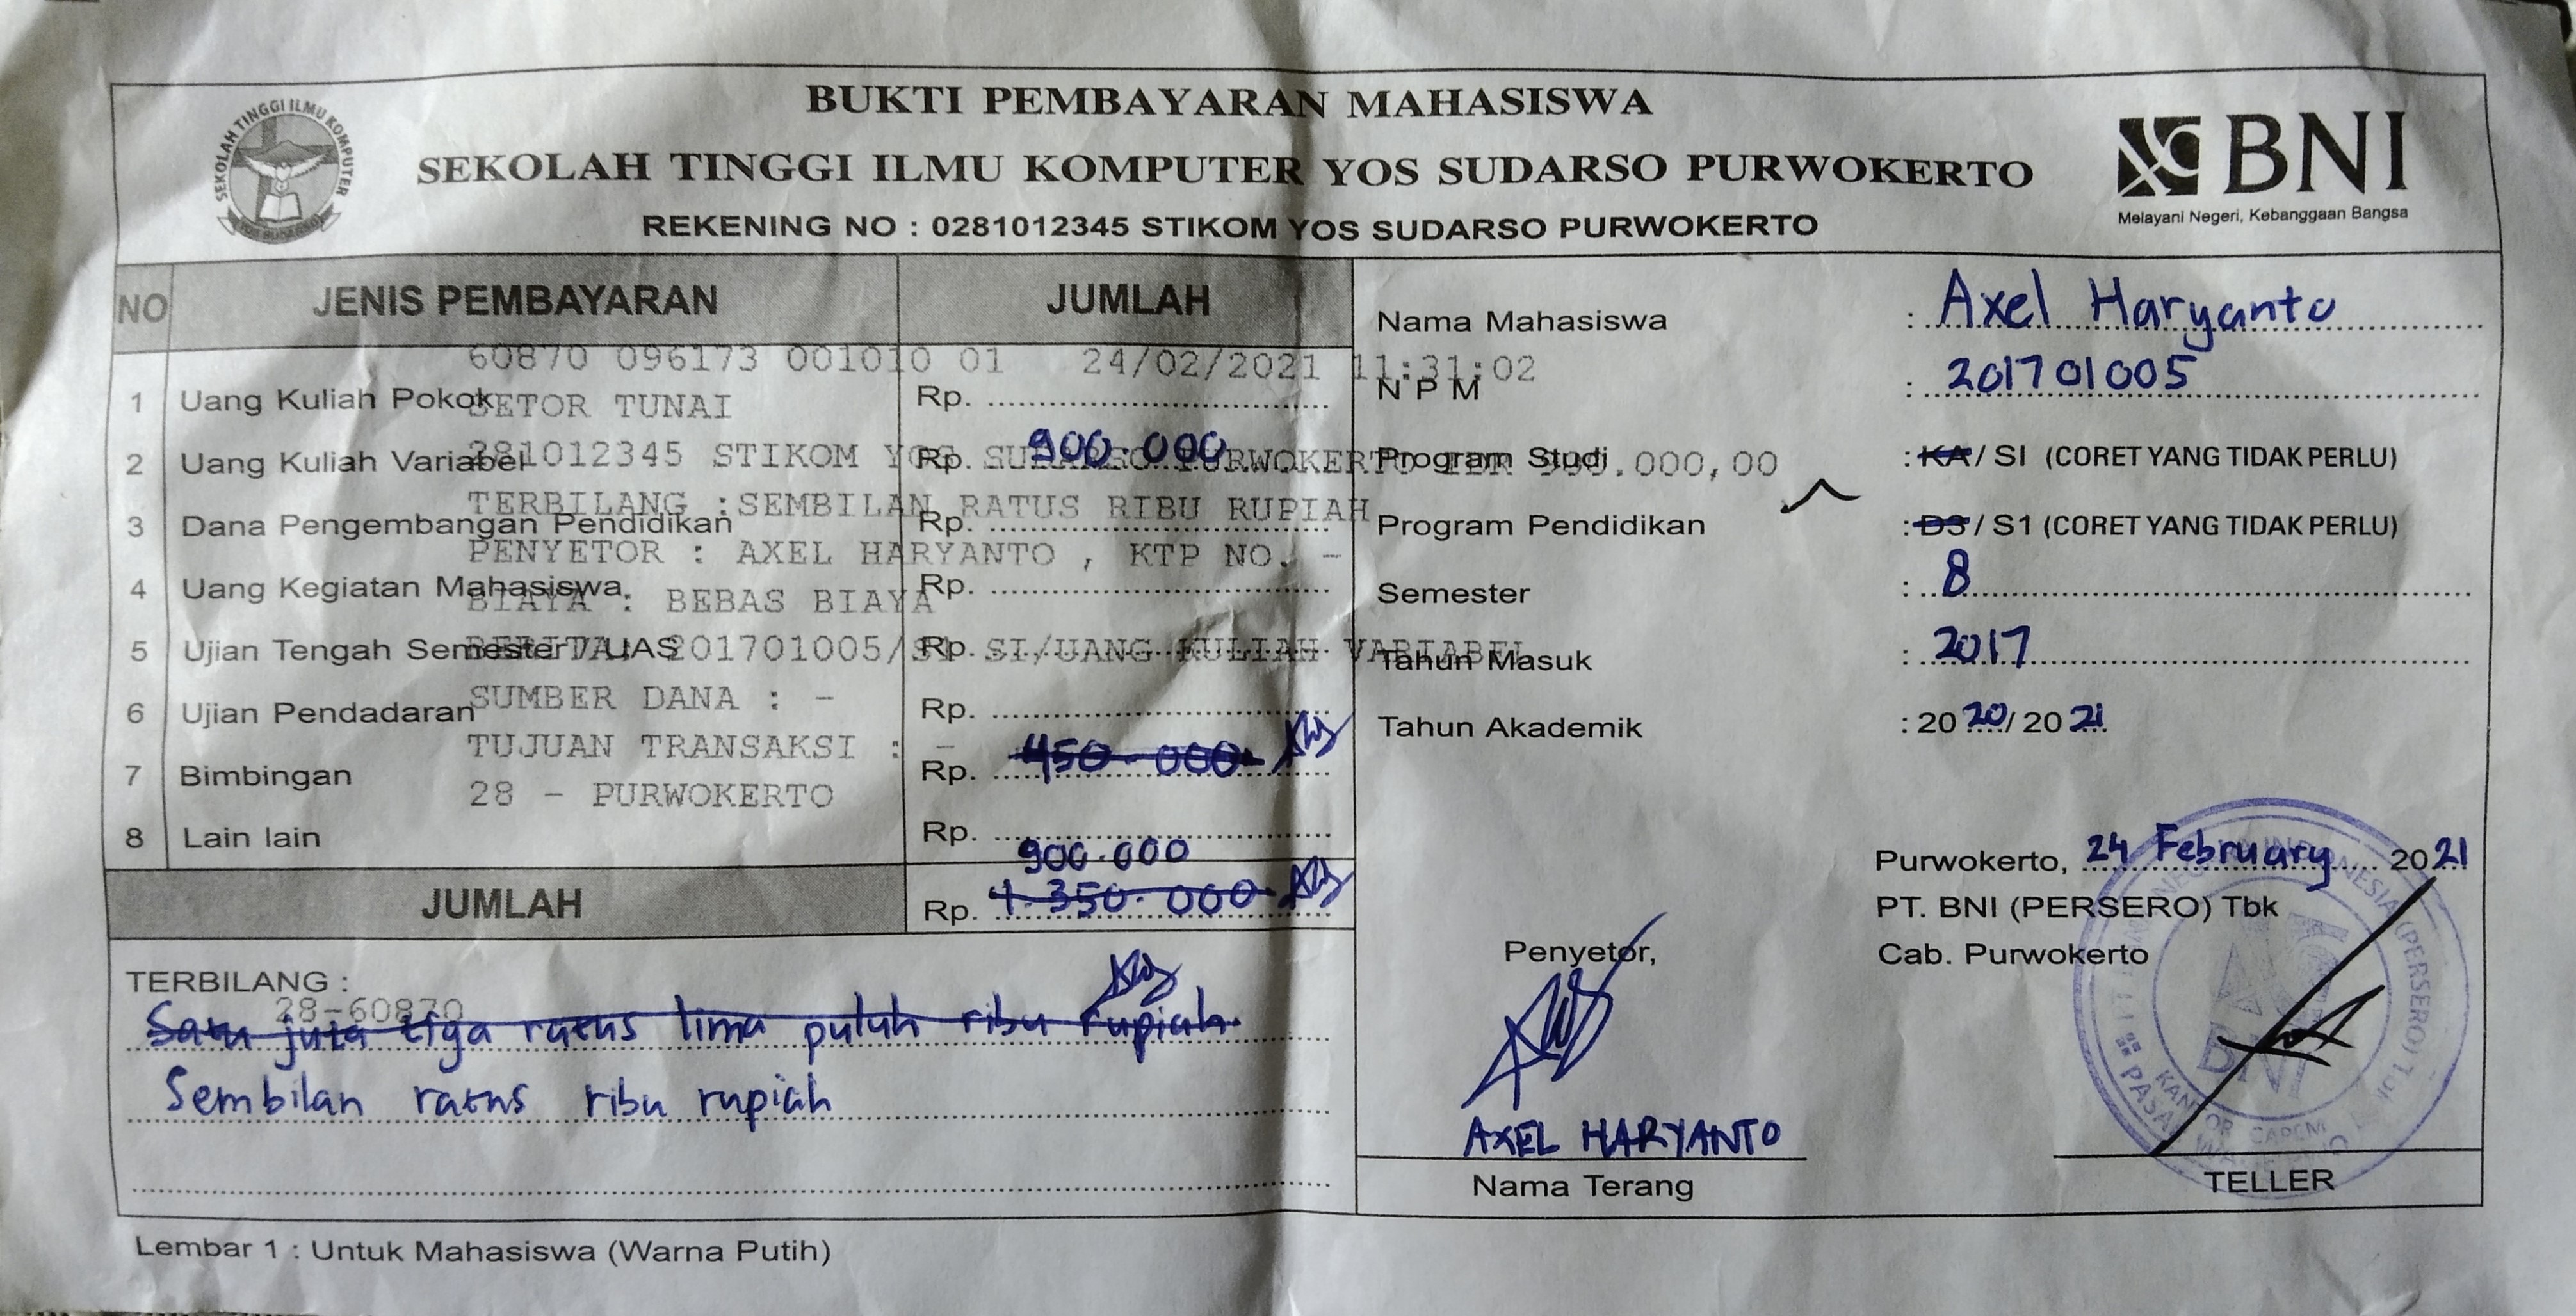 BUKTI PEMBAYARAN MAHASISWA
SEKOLAH TINGGI ILMU KOMPUTER YOS SUDARSO PURWOKERTO
REKENING NO : 0281012345 STIKOM YOS SUDARSO PURWOKERTO
SEKOLAH TINGGI ILMU KOMPUTER
YOS SUDARSO
BNI
Melayani Negeri, Kebanggaan Bangsa
NO JENIS PEMBAYARAN JUMLAH
1 Uang Kuliah Pokok Rp.
2 Uang Kuliah Variabel Rp. 900.000
3 Dana Pengembangan Pendidikan Rp.
4 Uang Kegiatan Mahasiswa Rp.
5 Ujian Tengah Semester / UAS Rp.
6 Ujian Pendadaran Rp.
7 Bimbingan Rp. 450.000
8 Lain lain Rp.
900.000
JUMLAH Rp. 1.350.000
60870 096173 001010 01 24/02/2021 11:31:02
SETOR TUNAI
281012345 STIKOM YOS SUDARSO PURWOKERTO IDR 900.000,00
TERBILANG :SEMBILAN RATUS RIBU RUPIAH
PENYETOR : AXEL HARYANTO , KTP NO. -
BIAYA : BEBAS BIAYA
BERITA: 201701005/S1 SI/UANG KULIAH VARIABEL
SUMBER DANA : -
TUJUAN TRANSAKSI : -
28 - PURWOKERTO
TERBILANG :
28-60870
Satu juta tiga ratus lima puluh ribu rupiah
Sembilan ratus ribu rupiah
Nama Mahasiswa : Axel Haryanto
N P M : 201701005
Program Studi : KA / SI (CORET YANG TIDAK PERLU)
Program Pendidikan : D3 / S1 (CORET YANG TIDAK PERLU)
Semester : 8
Tahun Masuk : 2017
Tahun Akademik : 2020/2021
Purwokerto, 24 February 2021
PT. BNI (PERSERO) Tbk
Cab. Purwokerto
Penyetor,
AXEL HARYANTO
Nama Terang
TELLER
Lembar 1 : Untuk Mahasiswa (Warna Putih)